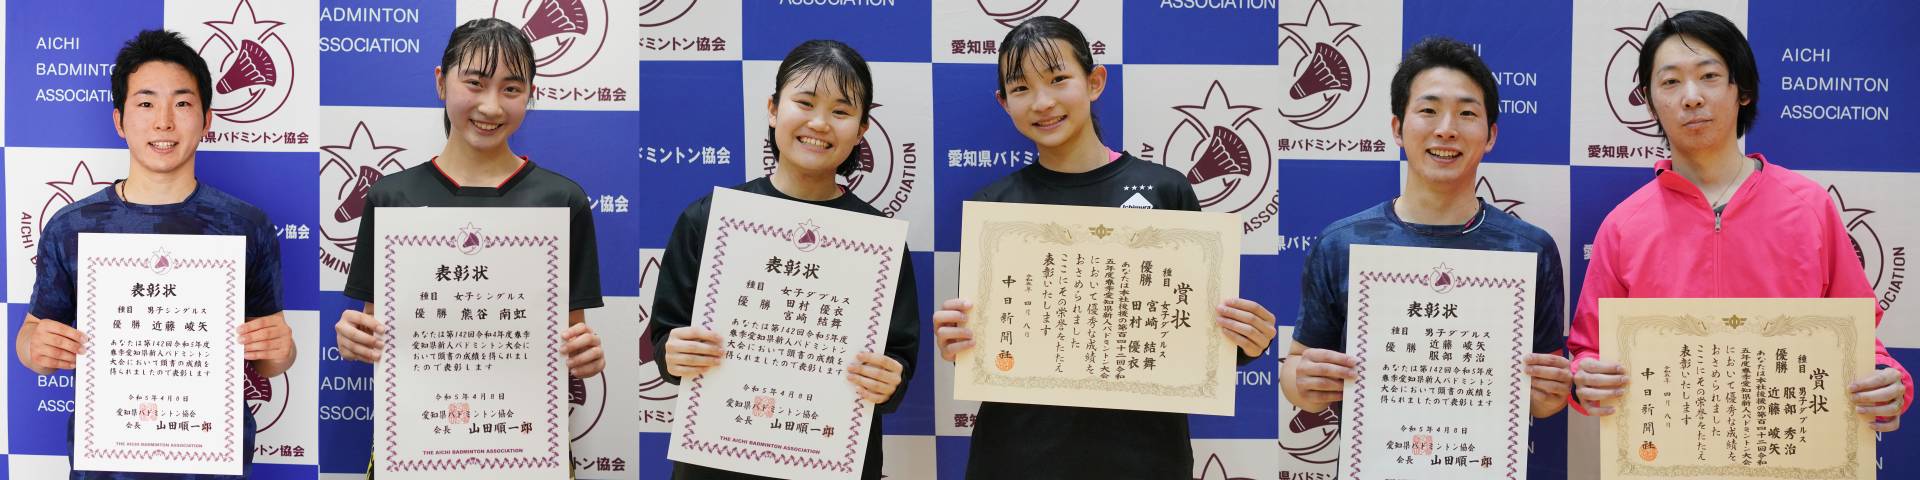 AICHI
BADMINTON
ASSOCIATION
愛知県バドミントン協会
表彰状
種目 男子シングルス
優勝 近藤 峻矢
あなたは第142回令和5年度
春季愛知県新人バドミントン
大会において頭書の成績を
得られましたので表彰します
令和5年4月8日
愛知県バドミントン協会
会長 山田順一郎
THE AICHI BADMINTON ASSOCIATION
BADMINTON
ASSOCIATION
バドミントン協会
表彰状
種目 女子シングルス
優勝 熊谷 南虹
あなたは第142回令和4年度春季
愛知県新人バドミントン大会に
おいて頭書の成績を得られまし
たので表彰します
令和5年4月8日
愛知県バドミントン協会
会長 山田順一郎
THE AICHI BADMINTON ASSOCIATION
表彰状
種目 女子ダブルス
優勝 田村 優衣
宮崎 結舞
あなたは第142回令和5年度
春季愛知県新人バドミントン
大会において頭書の成績を
得られましたので表彰します
令和5年4月8日
愛知県バドミントン協会
会長 山田順一郎
THE AICHI BADMINTON ASSOCIATION
ASSOCIATION
愛知県バドミントン協会
Ichimura
賞状
種目 女子ダブルス
優勝 宮崎 結舞
田村 優衣
あなたは本社後援の第百四十二回令和
五年度春季愛知県新人バドミントン大会
において優秀な成績を
おさめられました
ここにその栄誉をたたえ
表彰いたします
令和五年 四月 八日
中日新聞社
表彰状
種目 男子ダブルス
優勝 近藤 峻矢
服部 秀治
あなたは第142回令和5年度
春季愛知県新人バドミントン
大会において頭書の成績を
得られましたので表彰します
令和5年4月8日
愛知県バドミントン協会
会長 山田順一郎
AICHI
BADMINTON
ASSOCIATION
賞状
種目 男子ダブルス
優勝 服部 秀治
近藤 峻矢
あなたは本社後援の第百四十二回令和
五年度春季愛知県新人バドミントン大会
において優秀な成績を
おさめられました
ここにその栄誉をたたえ
表彰いたします
令和五年 四月 八日
中日新聞社